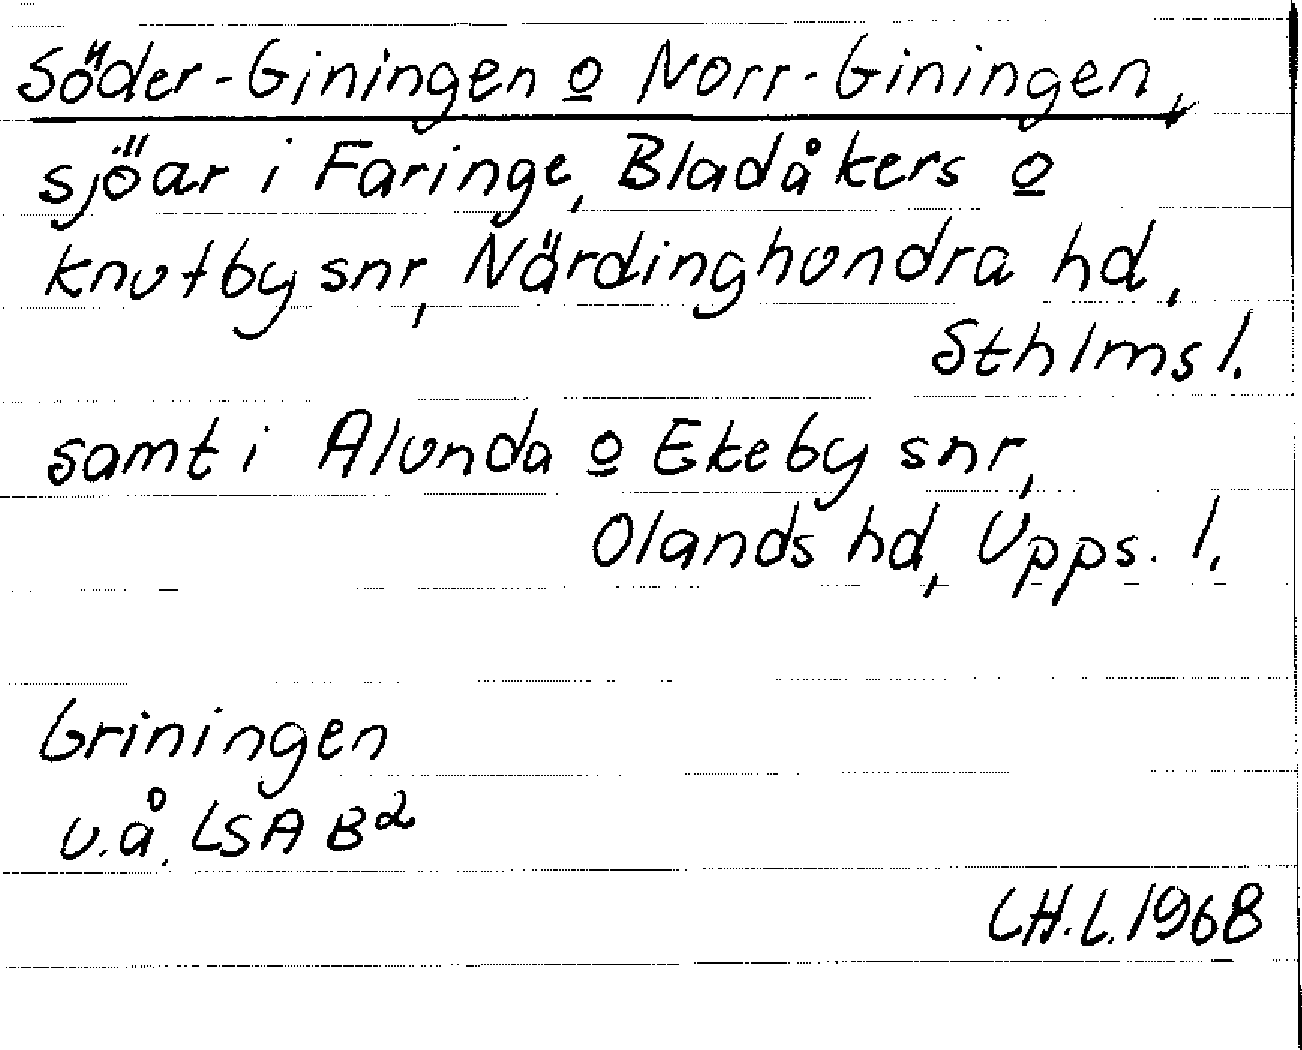 Söder-Giningen o Norr-Giningen,
sjöar i Faringe, Bladåkers o
Knutby snr, Närdinghundra hd,
Sthlms l.
samt i Alunda o Ekeby snr,
Olands hd, Upps. l.
Griningen
u.å. LSA B2
CH.L. 1968